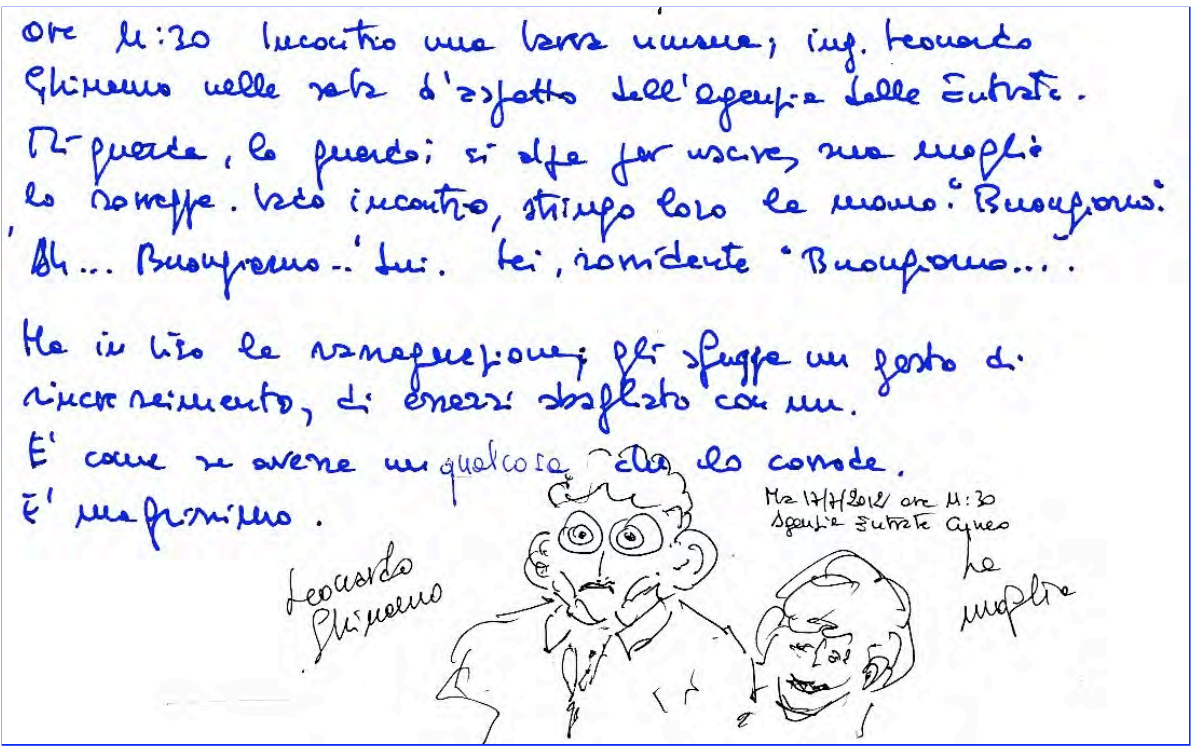 Ore 11:30 Incontro una larva umana; ing. Leonardo
Ghinamo nella sala d'aspetto dell'Agenzia delle Entrate.
Mi guarda, lo guardo; si alza per uscire, sua moglie
lo sorregge. Vado incontro, stringo loro la mano: "Buongiorno".
"Ah... Buongiorno.." Lui. Lei, sorridente "Buongiorno...".
Ha in viso la rassegnazione; gli sfugge un gesto di
rincrescimento, di essersi sbagliato con
E' come se avesse un qualcosa che lo corrode.
E' magrissimo.
Ma 17/7/2012 ore 11:30
Agenzia Entrate Cuneo
Leonardo
Ghinamo
La
moglie